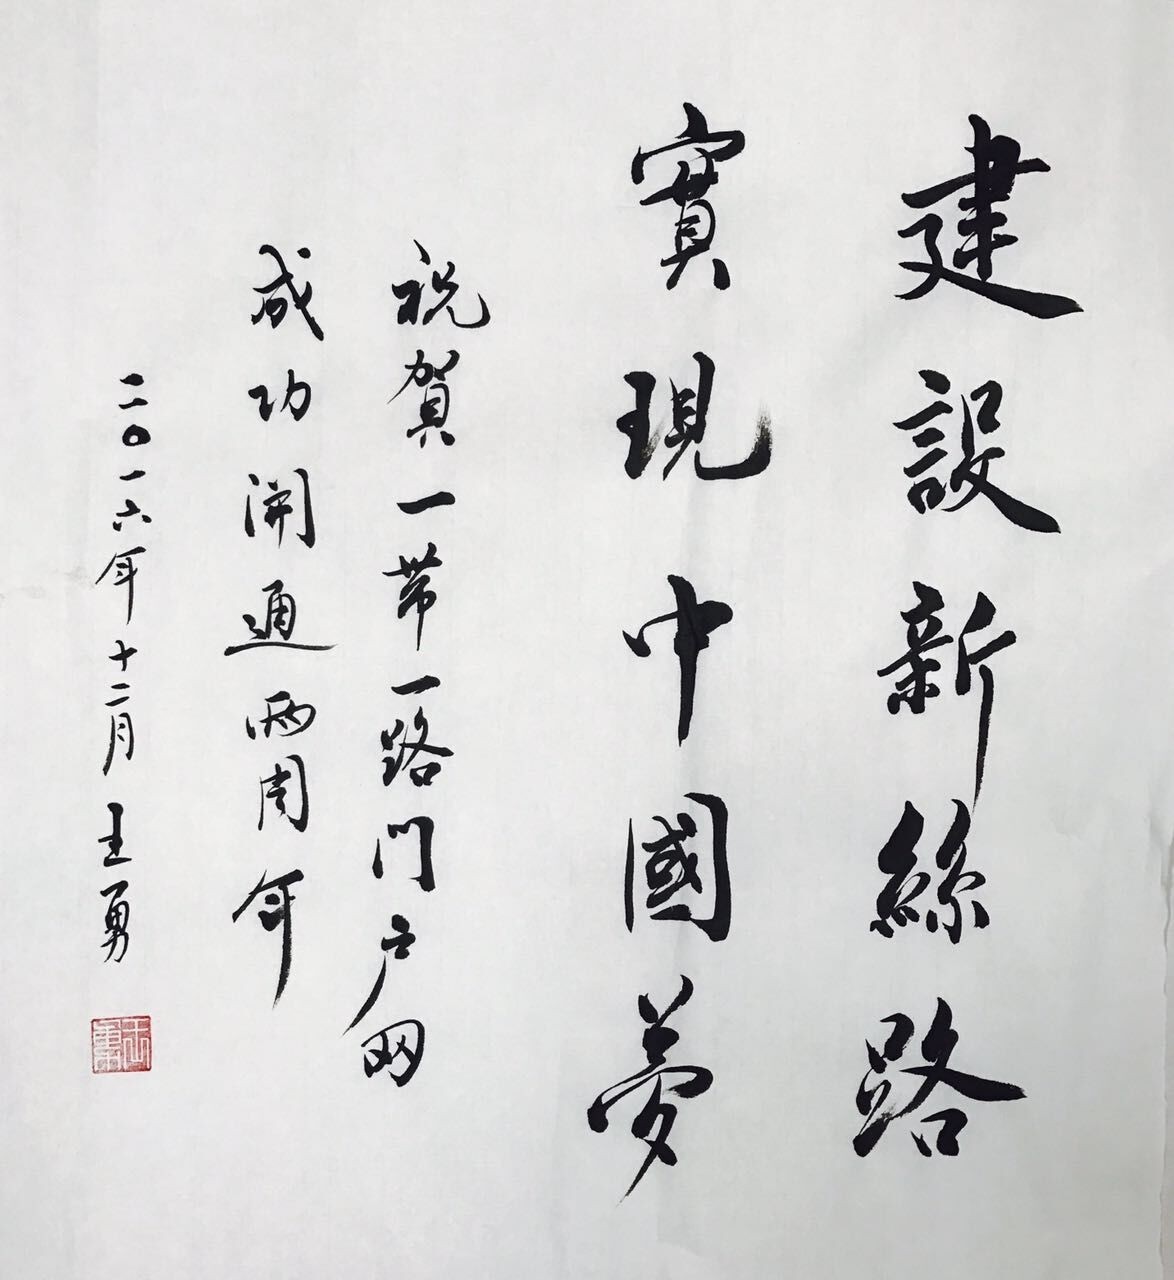 建設新絲路
實現中國夢
祝賀一带一路门户网
成功開通两周年
二〇一六年十二月 王勇